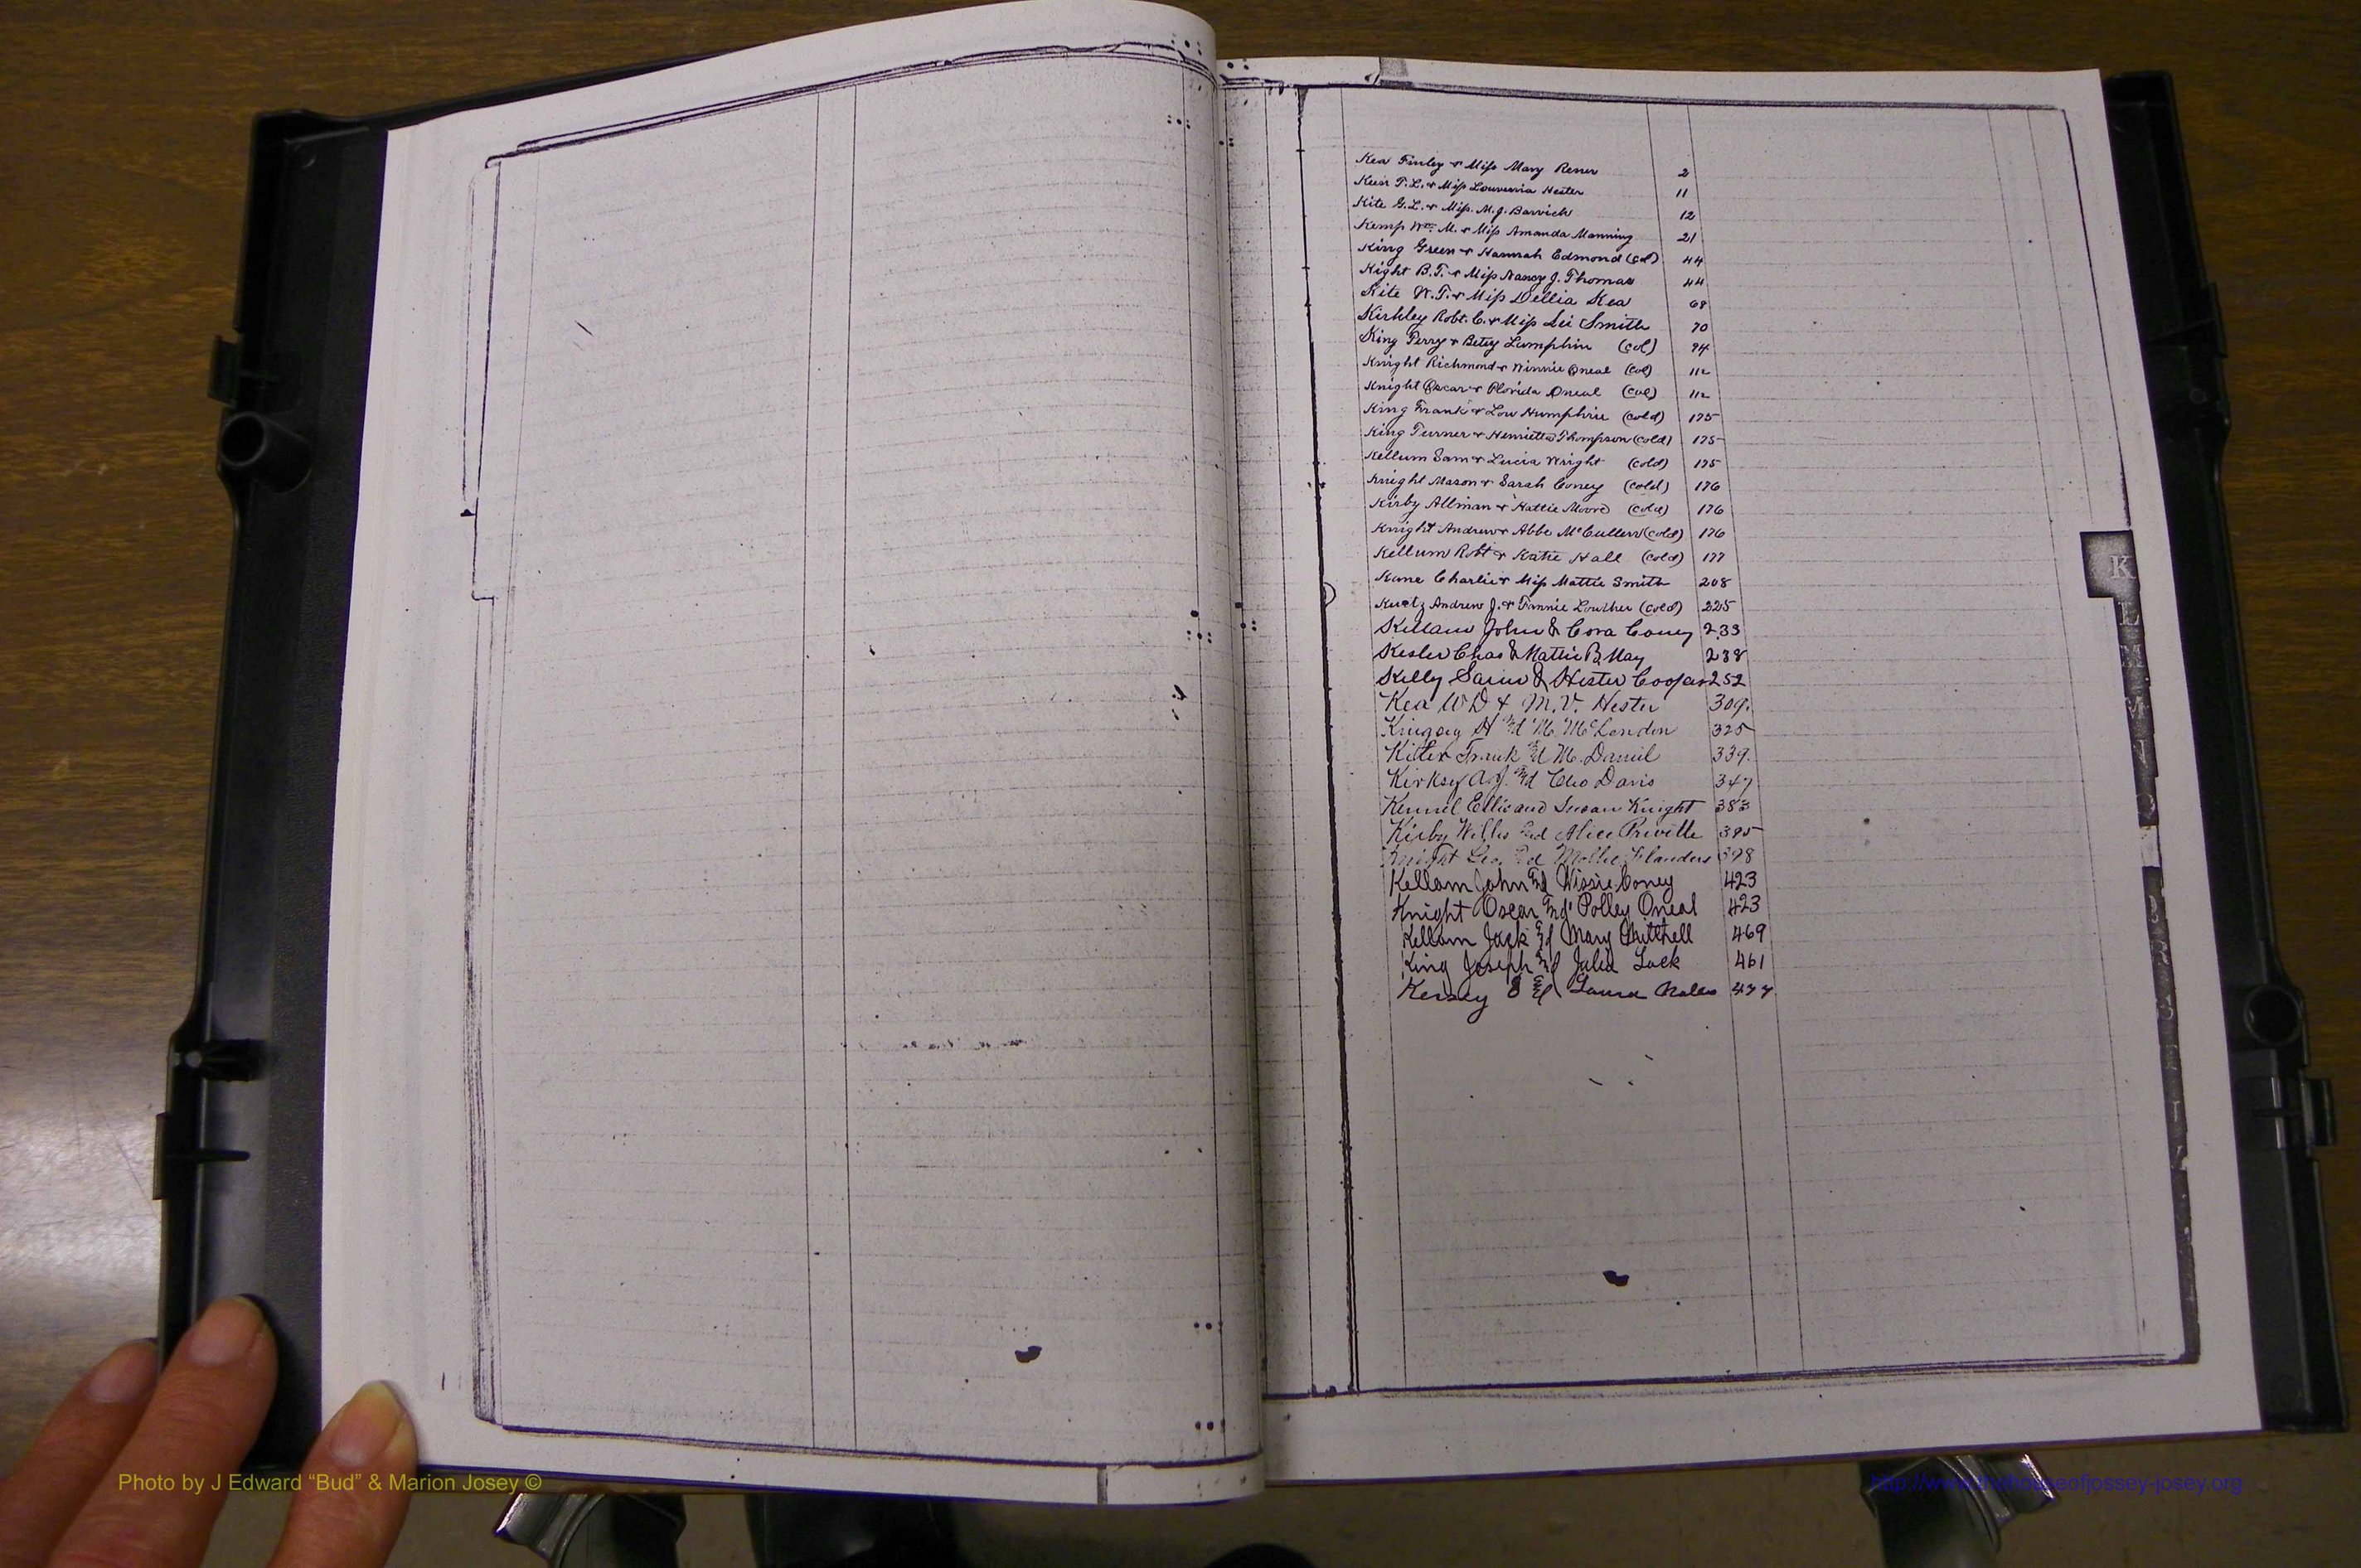 Kea Finley & Miss Mary Rener 2
Keen T. L. & Miss Louvenia Hester 11
Kite G. L. & Miss. M. J. Barwick 12
Kemp Wm. M. & Miss Amanda Manning 21
King Green & Hannah Edmond (col) 44
Kight B. T. & Miss Nancy J. Thomas 44
Kite W. T. & Miss Dellia Kea 68
Kirkley Robt. C. & Miss Lei Smith 70
King Perry & Betsy Lumpkin (col) 94
Knight Richmond & Winnie Oneal (col) 112
Knight Oscar & Florida Oneal (col) 112
King Frank & Low Humphrie (cold) 175
King Turner & Henrietta Thompson (cold) 175
Kellum Sam & Lucia Wright (cold) 175
Knight Mason & Sarah Coney (cold) 176
Kirby Allman & Hattie Moore (cold) 176
Knight Andrew & Abbe McCullers (cold) 176
Kellum Robt & Katie Hall (cold) 177
Kane Charlie & Miss Mattie Smith 208
Kurtz Andrew J. & Fannie Lowther (cold) 225
Kellam John & Cora Coney 233
Kesler Chas & Mattie B. May 238
Kelly & Hester 252
Kea W D & M. V. Hester 309.
H and M. McLendon 325
Frank and M. Daniel 339.
Kirksey A. J. and Cleo Davis 347
Kennel Ellis and Susan Knight 383
Kirby Willis and Alice Privette 395
Knight Geo. and Mollie Flanders 398
Kellam John and Wissie Coney 423
Knight Oscar and Polley Oneal 423
Kellam Jack and Mary Mitchell 469
King Joseph and Julia Lock 461
Kersey and Laura 477
K
L
M
Photo by J Edward “Bud” & Marion Josey ©
http://www.thehouseofjossey-josey.org